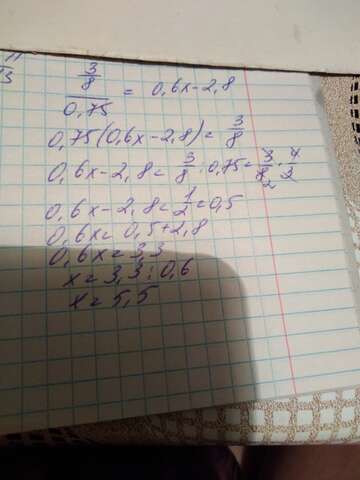 11
13
3/8
——— = 0,6x-2,8
0,75
0,75(0,6x-2,8)= 3/8
0,6x-2,8= 3/8 : 0,75= 3/8 2 · 4/3
0,6x-2,8= 1/2 =0,5
0,6x= 0,5+2,8
0,6x= 3,3
x= 3,3:0,6
x= 5,5